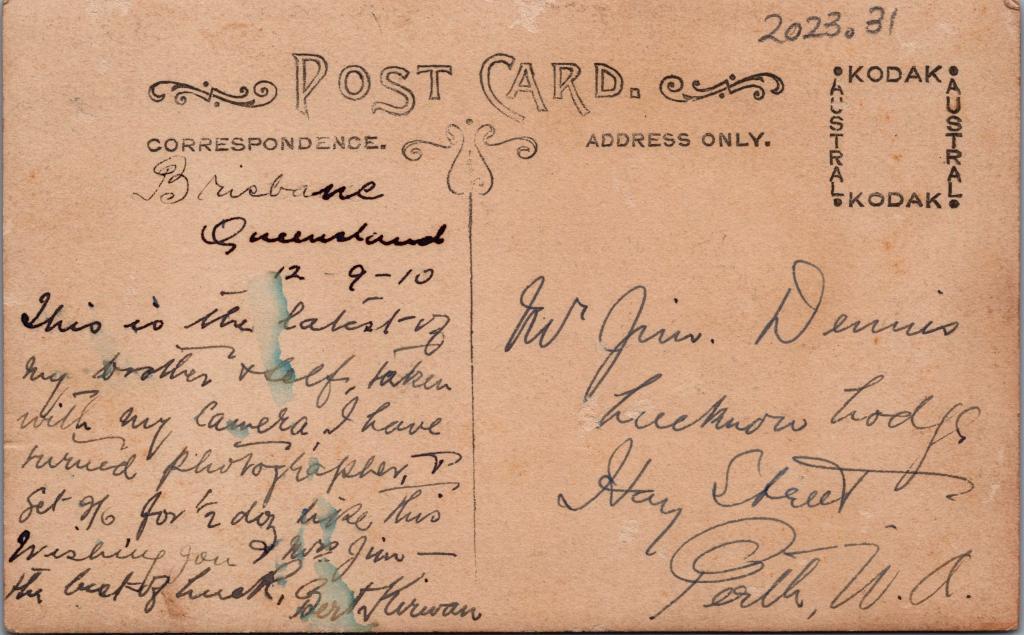 2023.31
POST CARD.
CORRESPONDENCE.
ADDRESS ONLY.
KODAK
AUSTRAL
AUSTRAL
KODAK
Brisbane
Queensland
12-9-10
This is the latest of
my brother & self, taken
with my Camera, I have
turned photographer, &
get 9/6 for ½ doz like this
Wishing you & Mrs Jim —
the best of luck, Bert Kirwan
Mr Jim. Dennis
Lucknow Lodge
Hay Street
Perth, W. A.